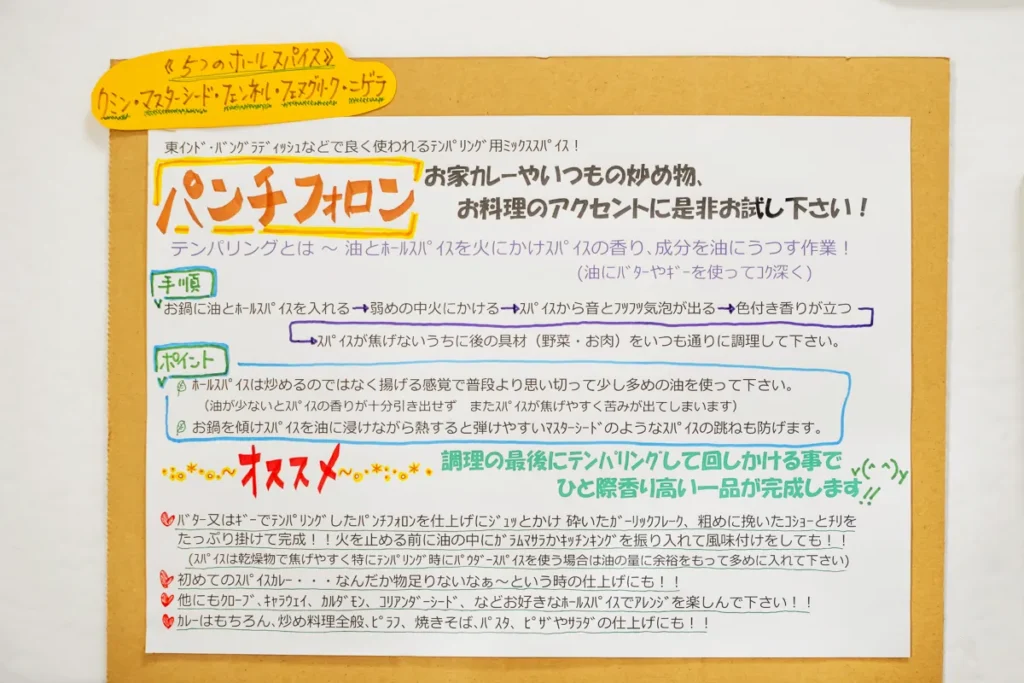 《5つのホールスパイス》
クミン・マスターシード・フェンネル・フェヌグリーク・ニゲラ
東インド・バングラディッシュなどで良く使われるテンパリング用ミックススパイス！
パンチフォロン
お家カレーやいつもの炒め物、
お料理のアクセントに是非お試し下さい！
テンパリングとは ～ 油とホールスパイスを火にかけスパイスの香り、成分を油にうつす作業！
(油にバターやギーを使ってコク深く)
手順
お鍋に油とホールスパイスを入れる→弱めの中火にかける→スパイスから音とフツフツ気泡が出る→色付き香りが立つ
→スパイスが焦げないうちに後の具材（野菜・お肉）をいつも通りに調理して下さい。
ポイント
ホールスパイスは炒めるのではなく揚げる感覚で普段より思い切って少し多めの油を使って下さい。
（油が少ないとスパイスの香りが十分引き出せず　またスパイスが焦げやすく苦みが出てしまいます）
お鍋を傾けスパイスを油に浸けながら熱すると弾けやすいマスターシードのようなスパイスの跳ねも防げます。
オススメ
調理の最後にテンパリングして回しかける事で
ひと際香り高い一品が完成します!! y(^^)y
バター又はギーでテンパリングしたパンチフォロンを仕上げにジュッとかけ 砕いたガーリックフレーク、粗めに挽いたコショーとチリを
たっぷり掛けて完成！！火を止める前に油の中にガラムマサラかキッチンキングを振り入れて風味付けをしても！！
(スパイスは乾燥物で焦げやすく特にテンパリング時にパウダースパイスを使う場合は油の量に余裕をもって多めに入れて下さい)
初めてのスパイスカレー・・・なんだか物足りないなぁ～という時の仕上げにも！！
他にもクローブ、キャラウェイ、カルダモン、コリアンダーシード、などお好きなホールスパイスでアレンジを楽しんで下さい！！
カレーはもちろん、炒め料理全般、ピラフ、焼きそば、パスタ、ピザやサラダの仕上げにも！！